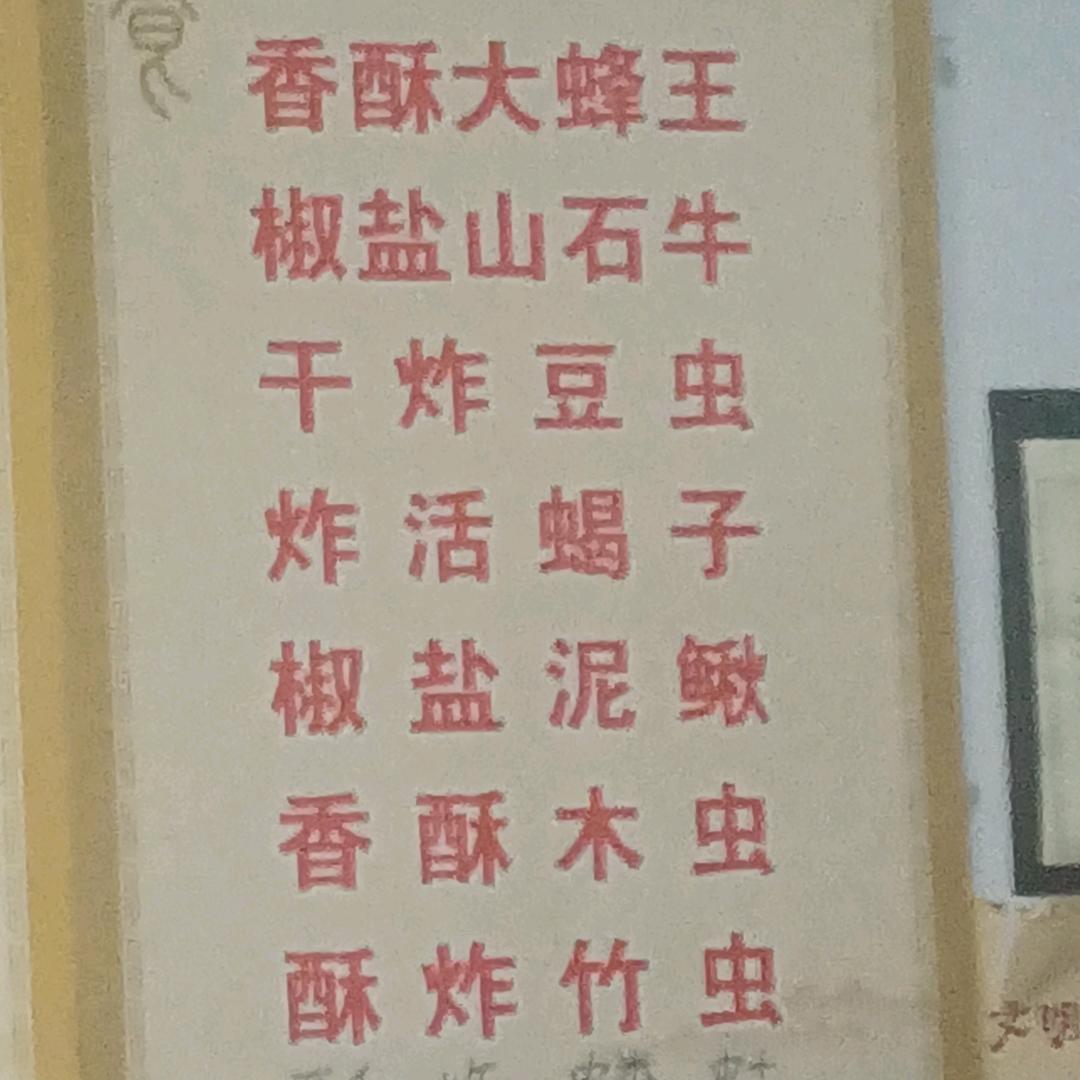 香酥大蜂王
椒盐山石牛
干炸豆虫
炸活蝎子
椒盐泥鳅
香酥木虫
酥炸竹虫